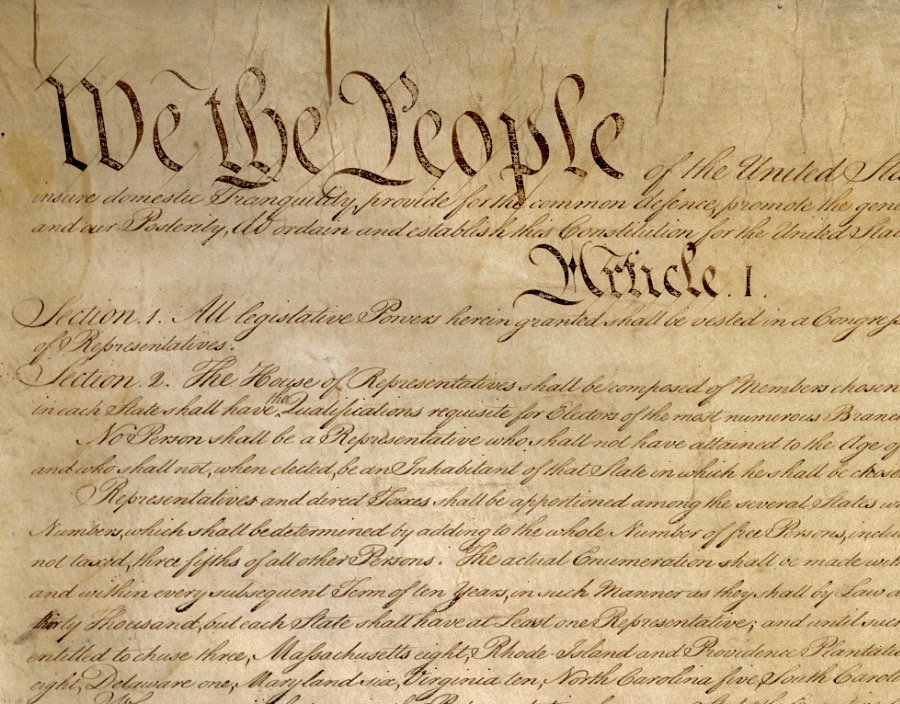 We the People of the United Sta
insure domestic Tranquility, provide for the common defence, promote the gene
and our Posterity, do ordain and establish this Constitution for the United Sta
Article. I.
Section. 1. All legislative Powers herein granted shall be vested in a Congres
of Representatives.
Section. 2. The House of Representatives shall be composed of Members chosen
in each State shall have the Qualifications requisite for Electors of the most numerous Branc
No Person shall be a Representative who shall not have attained to the Age of
and who shall not, when elected, be an Inhabitant of that State in which he shall be chose
Representatives and direct Taxes shall be apportioned among the several States w
Numbers, which shall be determined by adding to the whole Number of free Persons, inclu
not taxed, three fifths of all other Persons. The actual Enumeration shall be made
and within every subsequent Term of ten Years, in such Manner as they shall by Law
thirty Thousand, but each State shall have at Least one Representative; and until suc
entitled to chuse three, Massachusetts eight, Rhode Island and Providence Plantatio
eight, Delaware one, Maryland six, Virginia ten, North Carolina five, South Carol